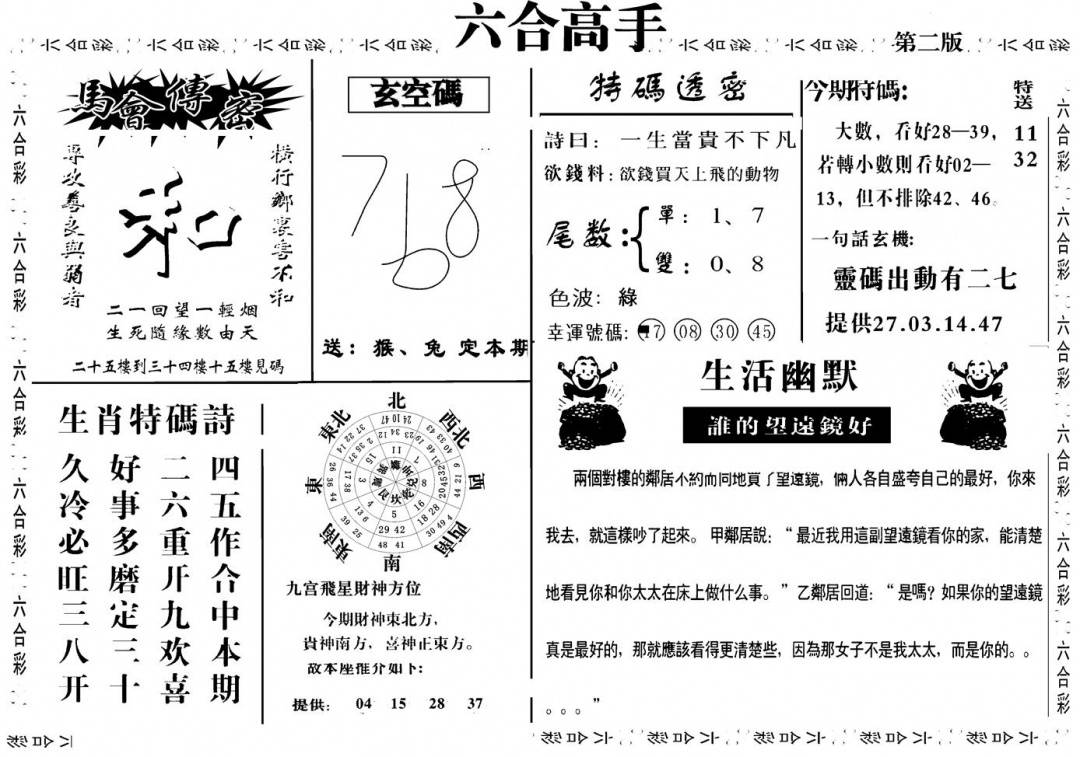 六合高手
第二版
馬會傳密
專攻善良與弱者
橫行鄉裏害不和
二一回望一輕烟
生死隨緣數由天
二十五樓到三十四樓十五樓見碼
玄空碼
送：猴、兔 定本期
特碼透密
詩曰： 一生當貴不下凡
欲錢料：欲錢買天上飛的動物
尾数：
單： 1、7
雙： 0、8
色波： 綠
幸運號碼: 17 08 30 45
今期特碼:
大數，看好28—39，
若轉小數則看好02—
13，但不排除42、46。
特送
11
32
一句話玄機:
靈碼出動有二七
提供27.03.14.47
生肖特碼詩
四五作合中本期
二六重开九欢喜
好事多磨定三十
久冷必旺三八开
北
西北
西
西南
南
東南
東
東北
九宫飛星財神方位
今期財神東北方，
貴神南方，喜神正東方。
故本座推介如下:
提供: 04 15 28 37
生活幽默
誰的望遠鏡好
兩個對樓的鄰居不約而同地買了望遠鏡，倆人各自盛夸自己的最好，你來
我去，就這樣吵了起來。甲鄰居説：“最近我用這副望遠鏡看你的家，能清楚
地看見你和你太太在床上做什么事。”乙鄰居回道：“是嗎？如果你的望遠鏡
真是最好的，那就應該看得更清楚些，因為那女子不是我太太，而是你的。。
。。。。”
六合彩